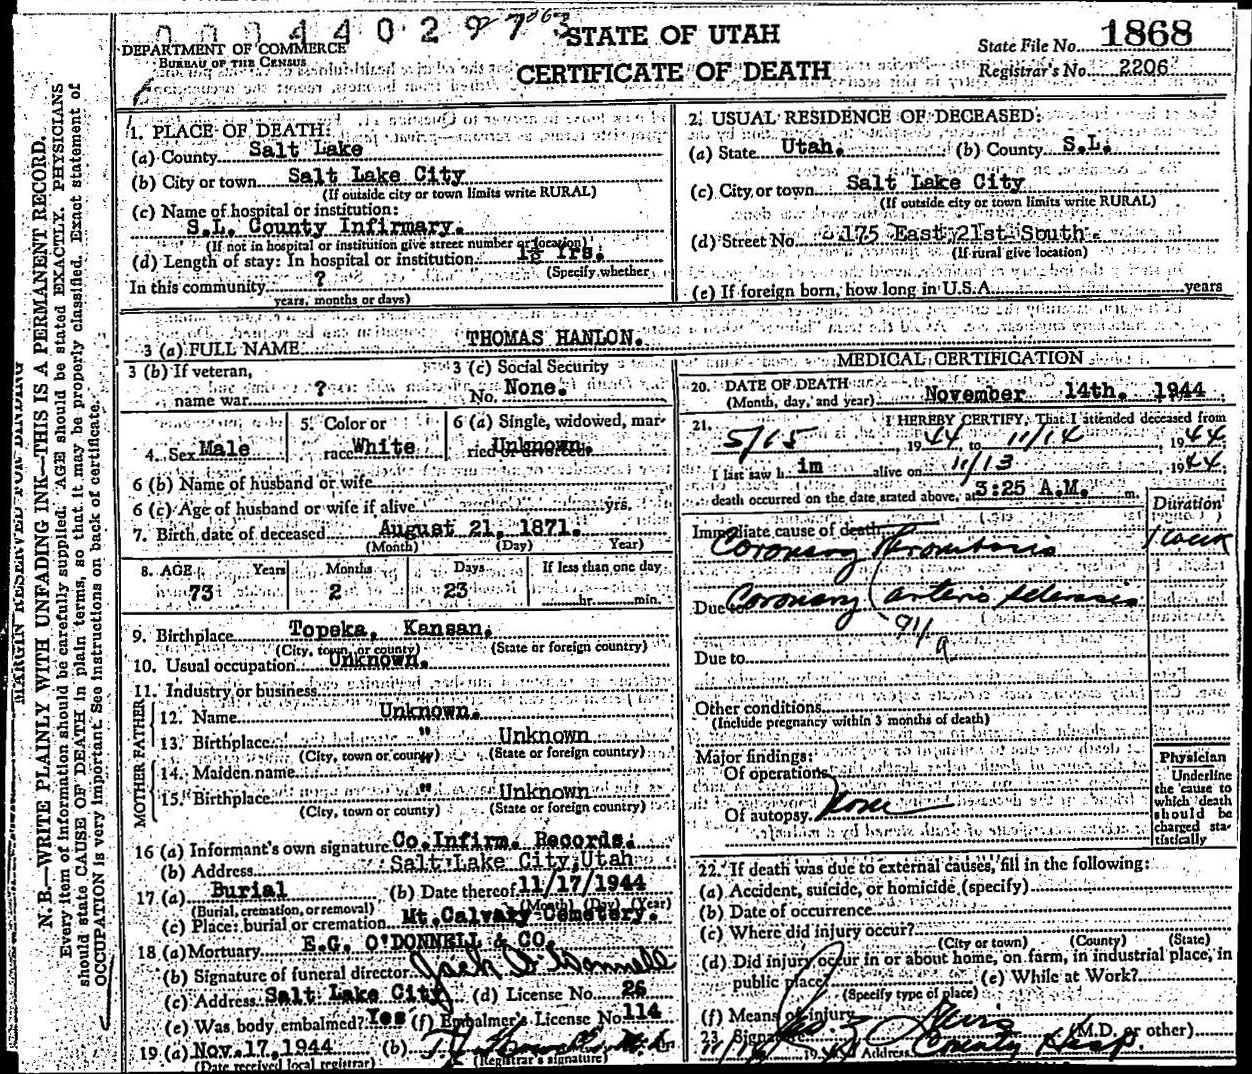 0004402973
7063
STATE OF UTAH
CERTIFICATE OF DEATH
DEPARTMENT OF COMMERCE
BUREAU OF THE CENSUS
State File No. 1868
Registrar's No. 2206
MARGIN RESERVED FOR BINDING
N. B.—WRITE PLAINLY WITH UNFADING INK—THIS IS A PERMANENT RECORD.
Every item of information should be carefully supplied. AGE should be stated EXACTLY. PHYSICIANS
should state CAUSE OF DEATH in plain terms, so that it may be properly classified. Exact statement of
OCCUPATION is very important. See instructions on back of certificate.
1. PLACE OF DEATH:
(a) County Salt Lake
(b) City or town Salt Lake City
(If outside city or town limits write RURAL)
(c) Name of hospital or institution:
S.L. County Infirmary.
(If not in hospital or institution give street number or location)
(d) Length of stay: In hospital or institution 1½ Yrs.
(Specify whether
In this community ?
years, months or days)
2. USUAL RESIDENCE OF DECEASED:
(a) State Utah. (b) County S.L.
(c) City or town Salt Lake City
(If outside city or town limits write RURAL)
(d) Street No. 175 East 21st South
(If rural give location)
(e) If foreign born, how long in U.S.A. years
3 (a) FULL NAME THOMAS HANLON.
3 (b) If veteran,
name war ?
3 (c) Social Security
No. None.
4. Sex Male
5. Color or
race White
6 (a) Single, widowed, mar-
ried or divorced Unknown.
6 (b) Name of husband or wife
6 (c) Age of husband or wife if alive yrs.
7. Birth date of deceased August 21, 1871.
(Month) (Day) Year)
8. AGE Years Months Days If less than one day
73 2 23 hr. min.
9. Birthplace Topeka, Kansan.
(City, town, or county) (State or foreign country)
10. Usual occupation Unknown.
11. Industry or business
FATHER
12. Name Unknown.
13. Birthplace " Unknown
(City, town or county) (State or foreign country)
MOTHER
14. Maiden name
15. Birthplace " Unknown
(City, town or county) (State or foreign country)
16 (a) Informant's own signature Co.Infirm. Records.
(b) Address Salt Lake City, Utah
17 (a) Burial (b) Date thereof 11/17/1944
(Burial, cremation, or removal) (Month) (Day) (Year)
(c) Place: burial or cremation Mt.Calvary Cemetery.
18 (a) Mortuary E.G. O'DONNELL & CO.
(b) Signature of funeral director Jack O'Donnell
(c) Address Salt Lake City (d) License No. 26
(e) Was body embalmed? Yes (f) Embalmer's License No. 114
19 (a) Nov.17,1944 (b)
(Date received local registrar) (Registrar's signature)
MEDICAL CERTIFICATION
20. DATE OF DEATH
(Month, day, and year) November 14th. 1944
21. I HEREBY CERTIFY, That I attended deceased from
5/15, 1944 to 11/14, 1944
I last saw h im alive on 11/13, 1944.
death occurred on the date stated above, at 3:25 A.M. m.
Duration
Immediate cause of death
Coronary thrombosis 1 week
Due to Coronary arterio sclerosis
94/a
Due to
Other conditions
(Include pregnancy within 3 months of death)
Major findings:
Of operations
Of autopsy None
Physician
Underline
the cause to
which death
should be
charged sta-
tistically
22. If death was due to external causes, fill in the following:
(a) Accident, suicide, or homicide (specify)
(b) Date of occurrence
(c) Where did injury occur?
(City or town) (County) (State)
(d) Did injury occur in or about home, on farm, in industrial place, in
public place? (e) While at Work?
(Specify type of place)
(f) Means of injury
23. Signature (M.D. or other)
19 44 Address County Hosp.